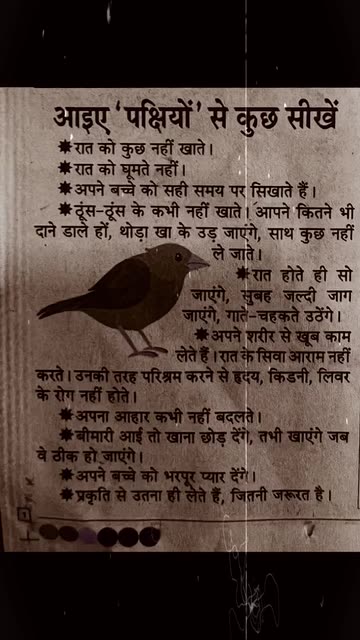 आइए ‘पक्षियों’ से कुछ सीखें
✷रात को कुछ नहीं खाते।
✷रात को घूमते नहीं।
✷अपने बच्चे को सही समय पर सिखाते हैं।
✷ठूंस-ठूंस के कभी नहीं खाते। आपने कितने भी
दाने डाले हों, थोड़ा खा के उड़ जाएंगे, साथ कुछ नहीं
ले जाते।
✷रात होते ही सो
जाएंगे, सुबह जल्दी जाग
जाएंगे, गाते-चहकते उठेंगे।
✷अपने शरीर से खूब काम
लेते हैं। रात के सिवा आराम नहीं
करते। उनकी तरह परिश्रम करने से हृदय, किडनी, लिवर
के रोग नहीं होते।
✷अपना आहार कभी नहीं बदलते।
✷बीमारी आई तो खाना छोड़ देंगे, तभी खाएंगे जब
वे ठीक हो जाएंगे।
✷अपने बच्चे को भरपूर प्यार देंगे।
✷प्रकृति से उतना ही लेते हैं, जितनी जरूरत है।